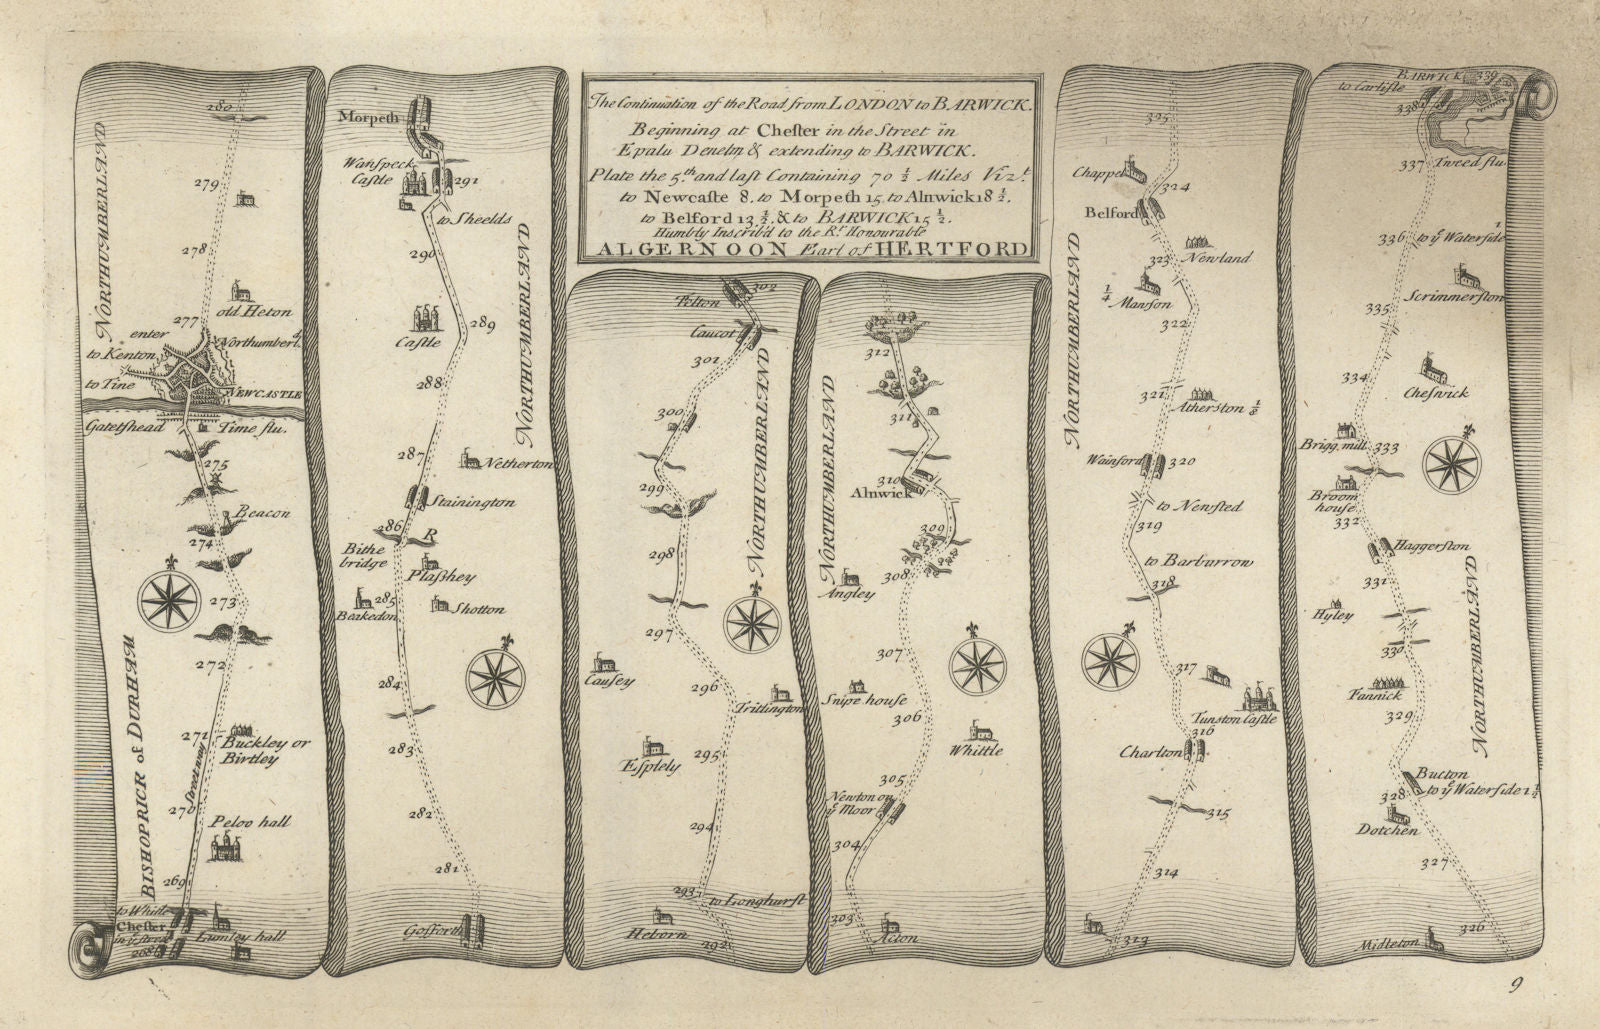 The Continuation of the Road from LONDON to BARWICK.
Beginning at Chester in the Street in
Epalu Denelm & extending to BARWICK.
Plate the 5.th and last Containing 70 1/2 Miles Vizt.
to Newcastle 8. to Morpeth 15. to Alnwick 18 1/2.
to Belford 13 1/2. & to BARWICK 15 1/2.
Humbly Inscrib'd to the Rt. Honourable
ALGERNOON Earl of HERTFORD
280
NORTHUMBERLAND
279
278
old Heton
277
enter
Northumberld.
to Kenton
to Tine
NEWCASTLE
Gateshead
Time flu.
275
Beacon
274
273
272
BISHOPRICK of DURHAM
271
Buckley or
Birtley
Street way
270
Peloo hall
269
Chester
in ye street
Lumley hall
268
Morpeth
Wanspeck
Castle
291
to Sheelds
290
NORTHUMBERLAND
289
Castle
288
287
Netherton
Stainington
286
R
Bithe
bridge
Plasshey
285
Shotton
Beakedon
284
283
282
281
Gosforth
302
Felton
Caucot
301
NORTHUMBERLAND
300
299
298
297
Causey
296
Tritlington
295
Esplely
294
293
to Longhurst
Heborn
292
312
NORTHUMBERLAND
311
310
Alnwick
309
308
Angley
307
Snipe house
306
Whittle
305
Newton on
ye Moor
304
303
Acton
325
Chappel
324
Belford
NORTHUMBERLAND
323
Newland
1/4
Manson
322
321
Atherston 1/8
Wainford
320
to Newsted
319
to Barburrow
318
317
Tunston Castle
316
Charlton
315
314
313
BARWICK
339
to Carlisle
338
337
Tweed flu
1
336
to ye Waterside
Scrimmerston
335
334
Cheswick
Brigg mill
333
Broom
house
332
Haggerston
331
Hyley
NORTHUMBERLAND
330
Fannick
329
Bucton
to ye Waterside 1 1/2
328
Dotchen
327
326
Midleton
9